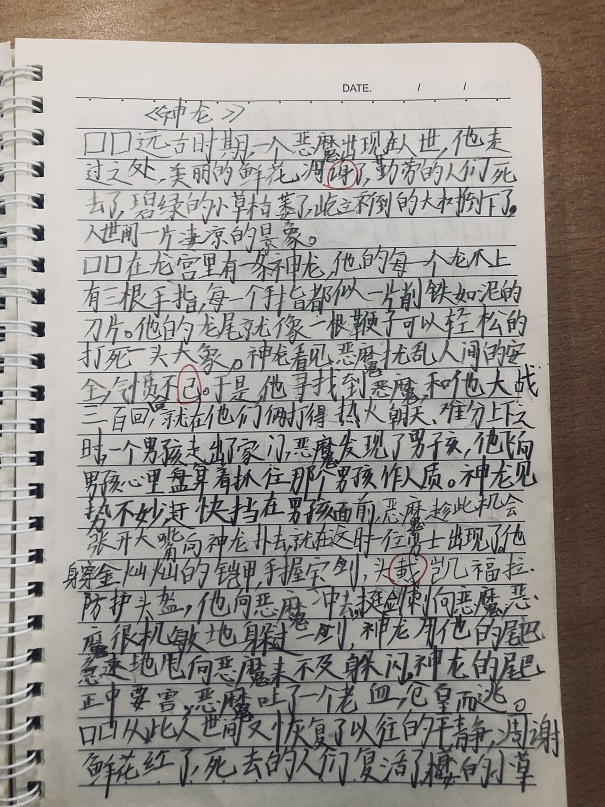 DATE. / /
《神龙》
口口远古时期,一个恶魔出现在人世,他走
过之处,美丽的鲜花凋谢了,勤劳的人们死
去了,碧绿的小草枯萎了,屹立不倒的大树倒下了。
人世间一片凄凉的景象。
口口在龙宫里有一条神龙,他的每一个龙爪上
有三根手指,每一个手指都似一片削铁如泥的
刀片。他的龙尾就像一根鞭子可以轻松的
打死一头大象。神龙看见恶魔扰乱人间的安
全,气愤不已。于是,他寻找到恶魔,和他大战
三百回,就在他们俩打得热火朝天、难分上下之
时一个男孩走出了家门,恶魔发现了男孩,他飞向
男孩心里盘算着抓住那个男孩作人质。神龙见
势不妙,赶快挡在男孩面前,恶魔趁此机会
张开大嘴向神龙扑去,就在这时一位勇士出现了,他
身穿金灿灿的铠甲,手握宝剑,头戴凯福拉
防护头盔,他向恶魔冲去,挺剑刺向恶魔,恶
魔很机敏地躲过一剑,神龙用他的尾巴
急速地甩向恶魔,恶魔来不及躲闪,神龙的尾巴
正中要害,恶魔吐了一个老血,仓皇而逃。
口口从此人世间又恢复了以往的平静,凋谢
鲜花红了,死去的人们复活了,枯萎的小草